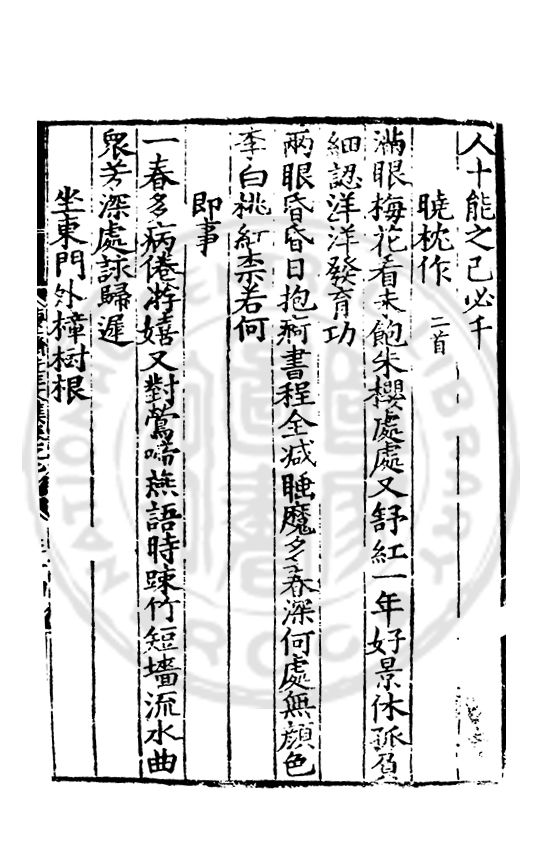 人十能之己必千
曉枕作 二首
滿眼梅花看未飽朱櫻處處又舒紅一年好景休孤負
細認洋洋發育功
兩眼昏昏日抱痾書程全减睡魔多春深何處無顔色
李白桃紅柰若何
即事
一春多病倦游嬉又對鶯啼燕語時踈竹短墻流水曲
衆芳深處詠歸遲
坐東門外樟樹根
NATIONAL CENTRAL LIBRARY
R.O.C.